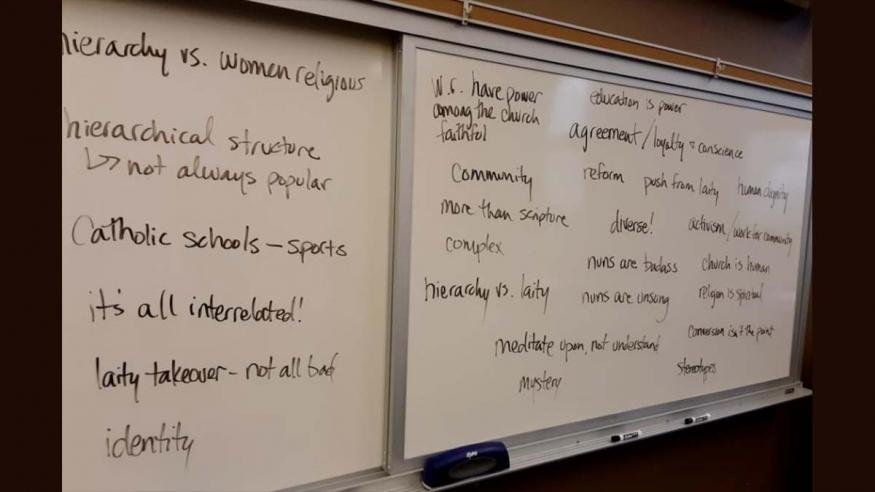 hierarchy vs. women religious
hierarchical structure
↳ not always popular
Catholic schools – sports
it's all interrelated!
laity takeover – not all bad
identity
w.r. have power
among the church
faithful
Community
more than scripture
complex
hierarchy vs. laity
education is power
agreement/loyalty + conscience
reform
push from laity
human dignity
diverse!
activism/work for community
nuns are badass
church is human
nuns are unsung
religion is spiritual
conversion isn't the point
meditate upon, not understand
mystery
stereotypes